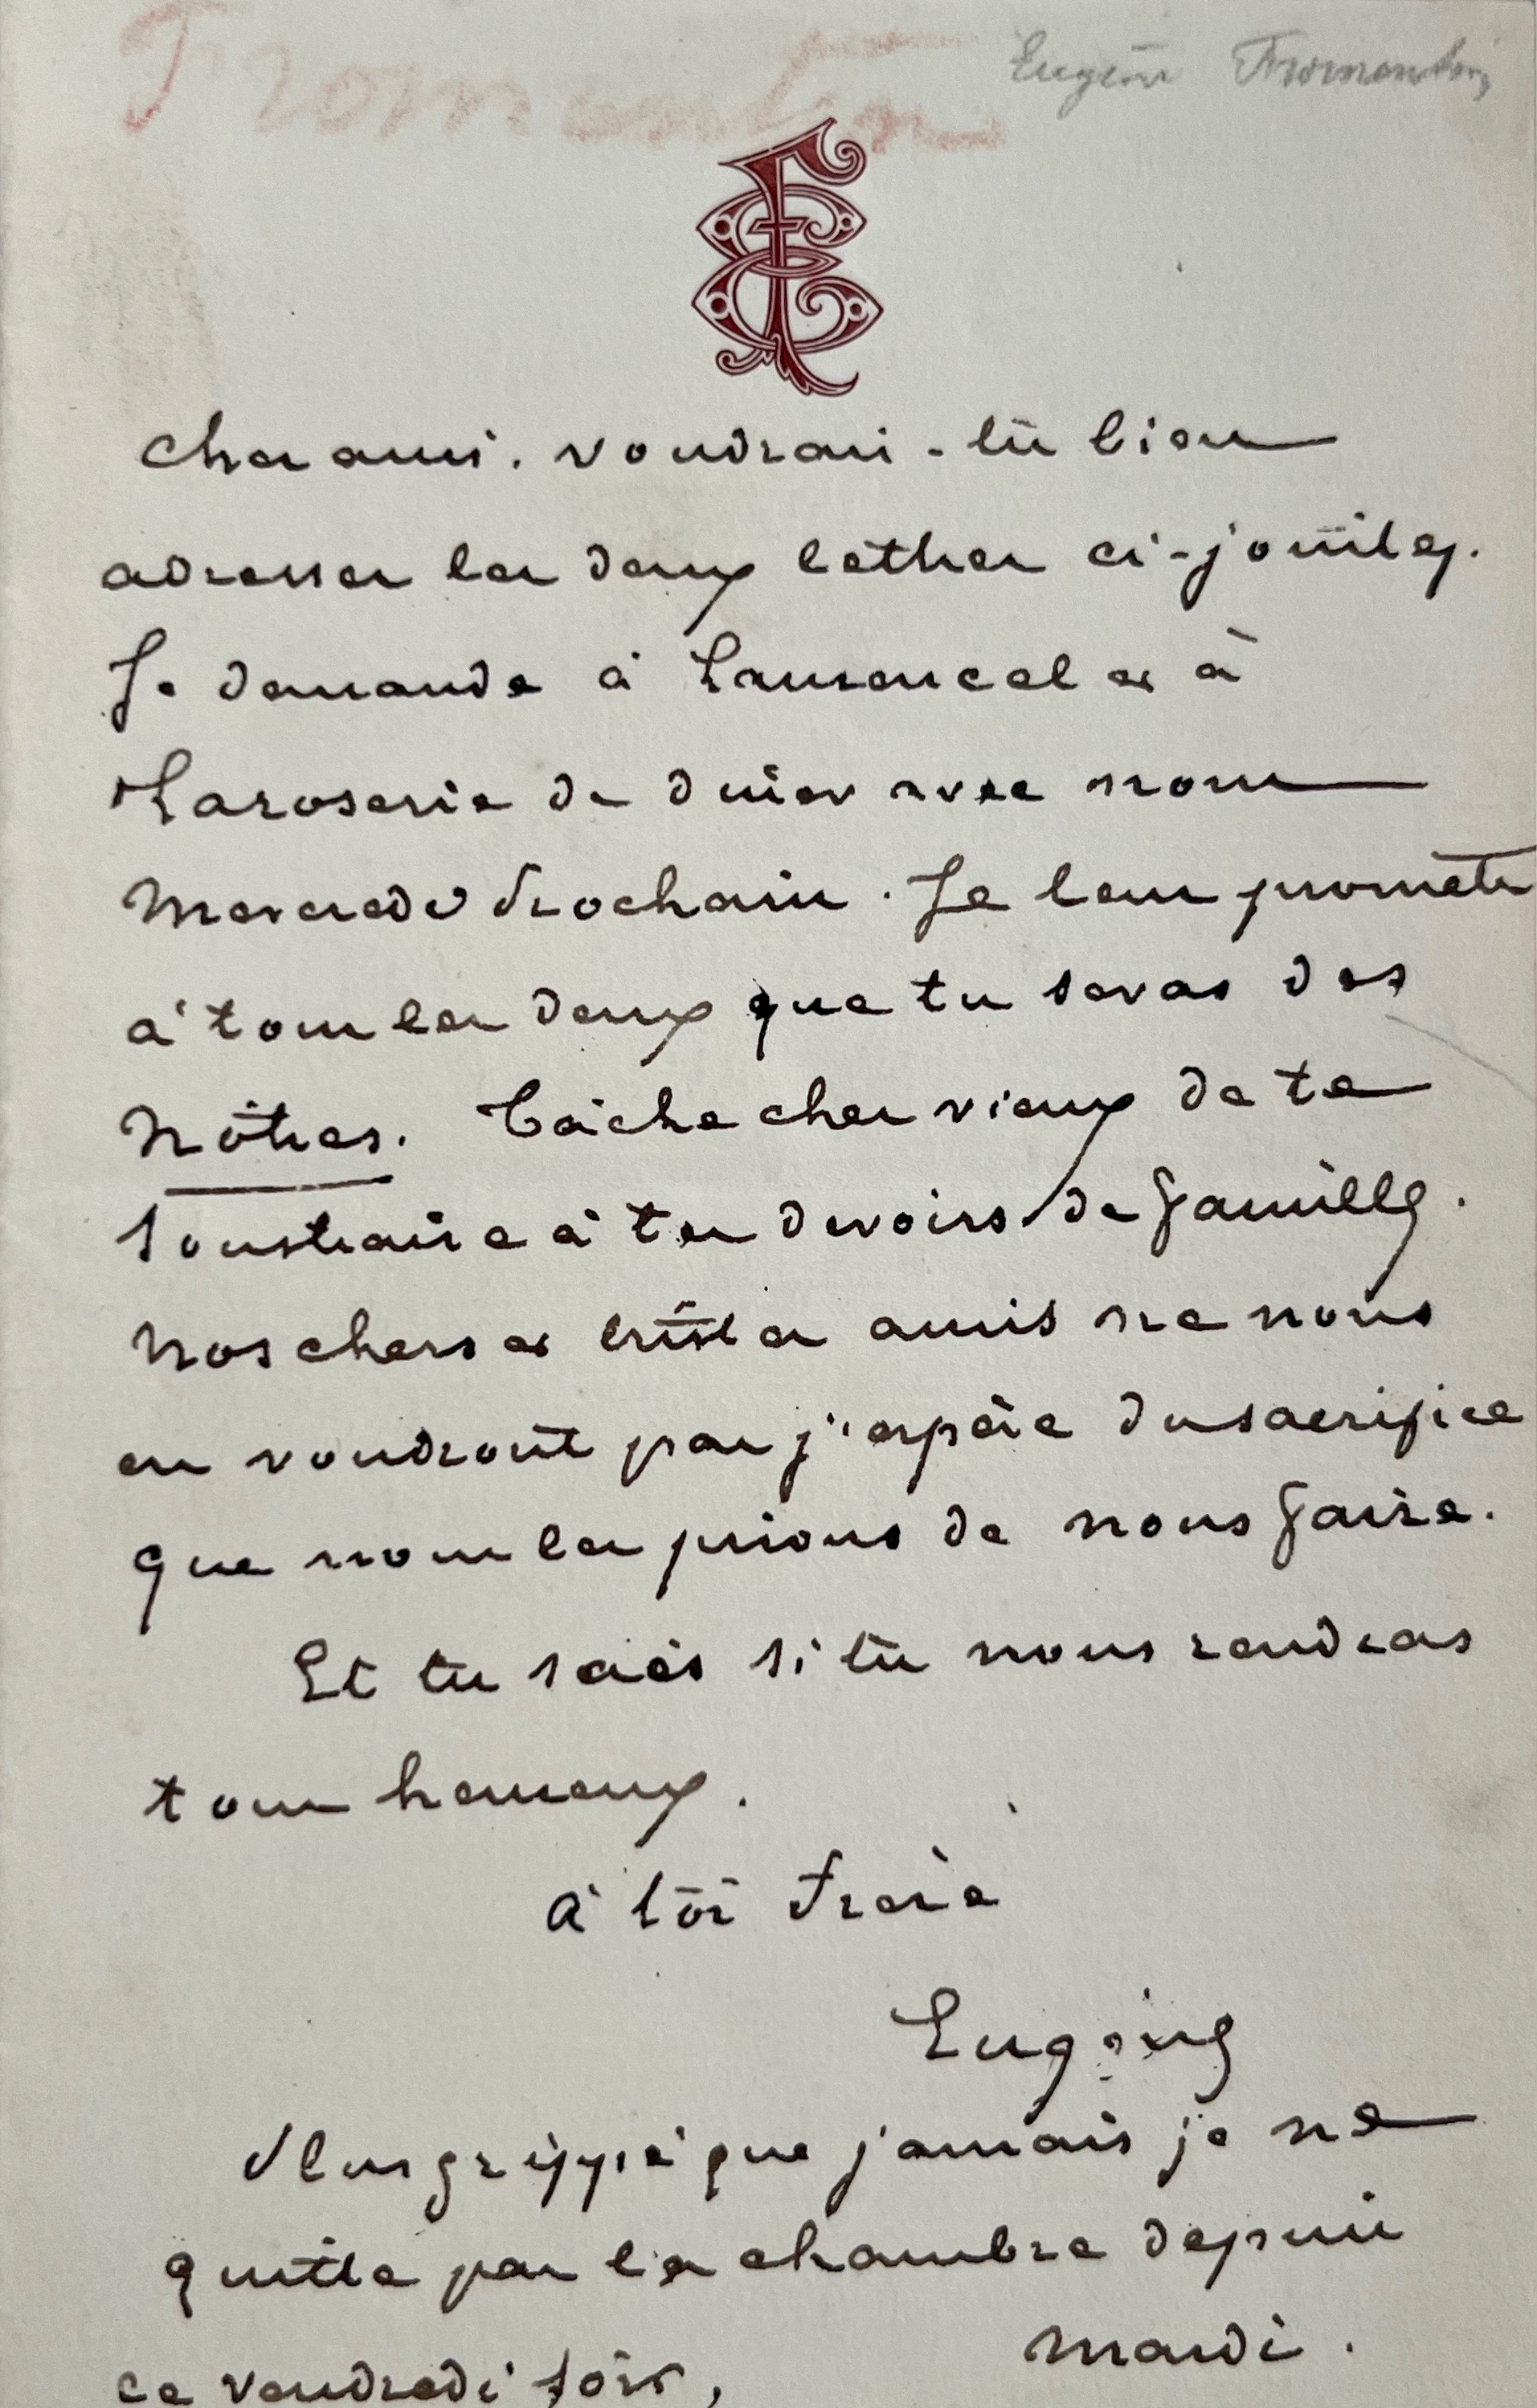 Fromentin
Eugène Fromentin
EF
cher ami. voudrais-tu bien
adresser les deux lettres ci-jointes.
Je demande à Laurencel et à
Laroserie de diner avec nous
Mercredi prochain. Je leur promets
à tous les deux que tu seras des
nôtres. Tâche cher vieux de te
soustraire à tes devoirs de famille.
Nos chers et tristes amis ne nous
en voudront pas j'espère du sacrifice
que nous les prions de nous faire.
Et tu sais si tu nous rendras
tous heureux.
à toi frère
Eugène
Plus grippé que jamais je ne
quitte pas la chambre depuis
mardi.
ce vendredi soir,